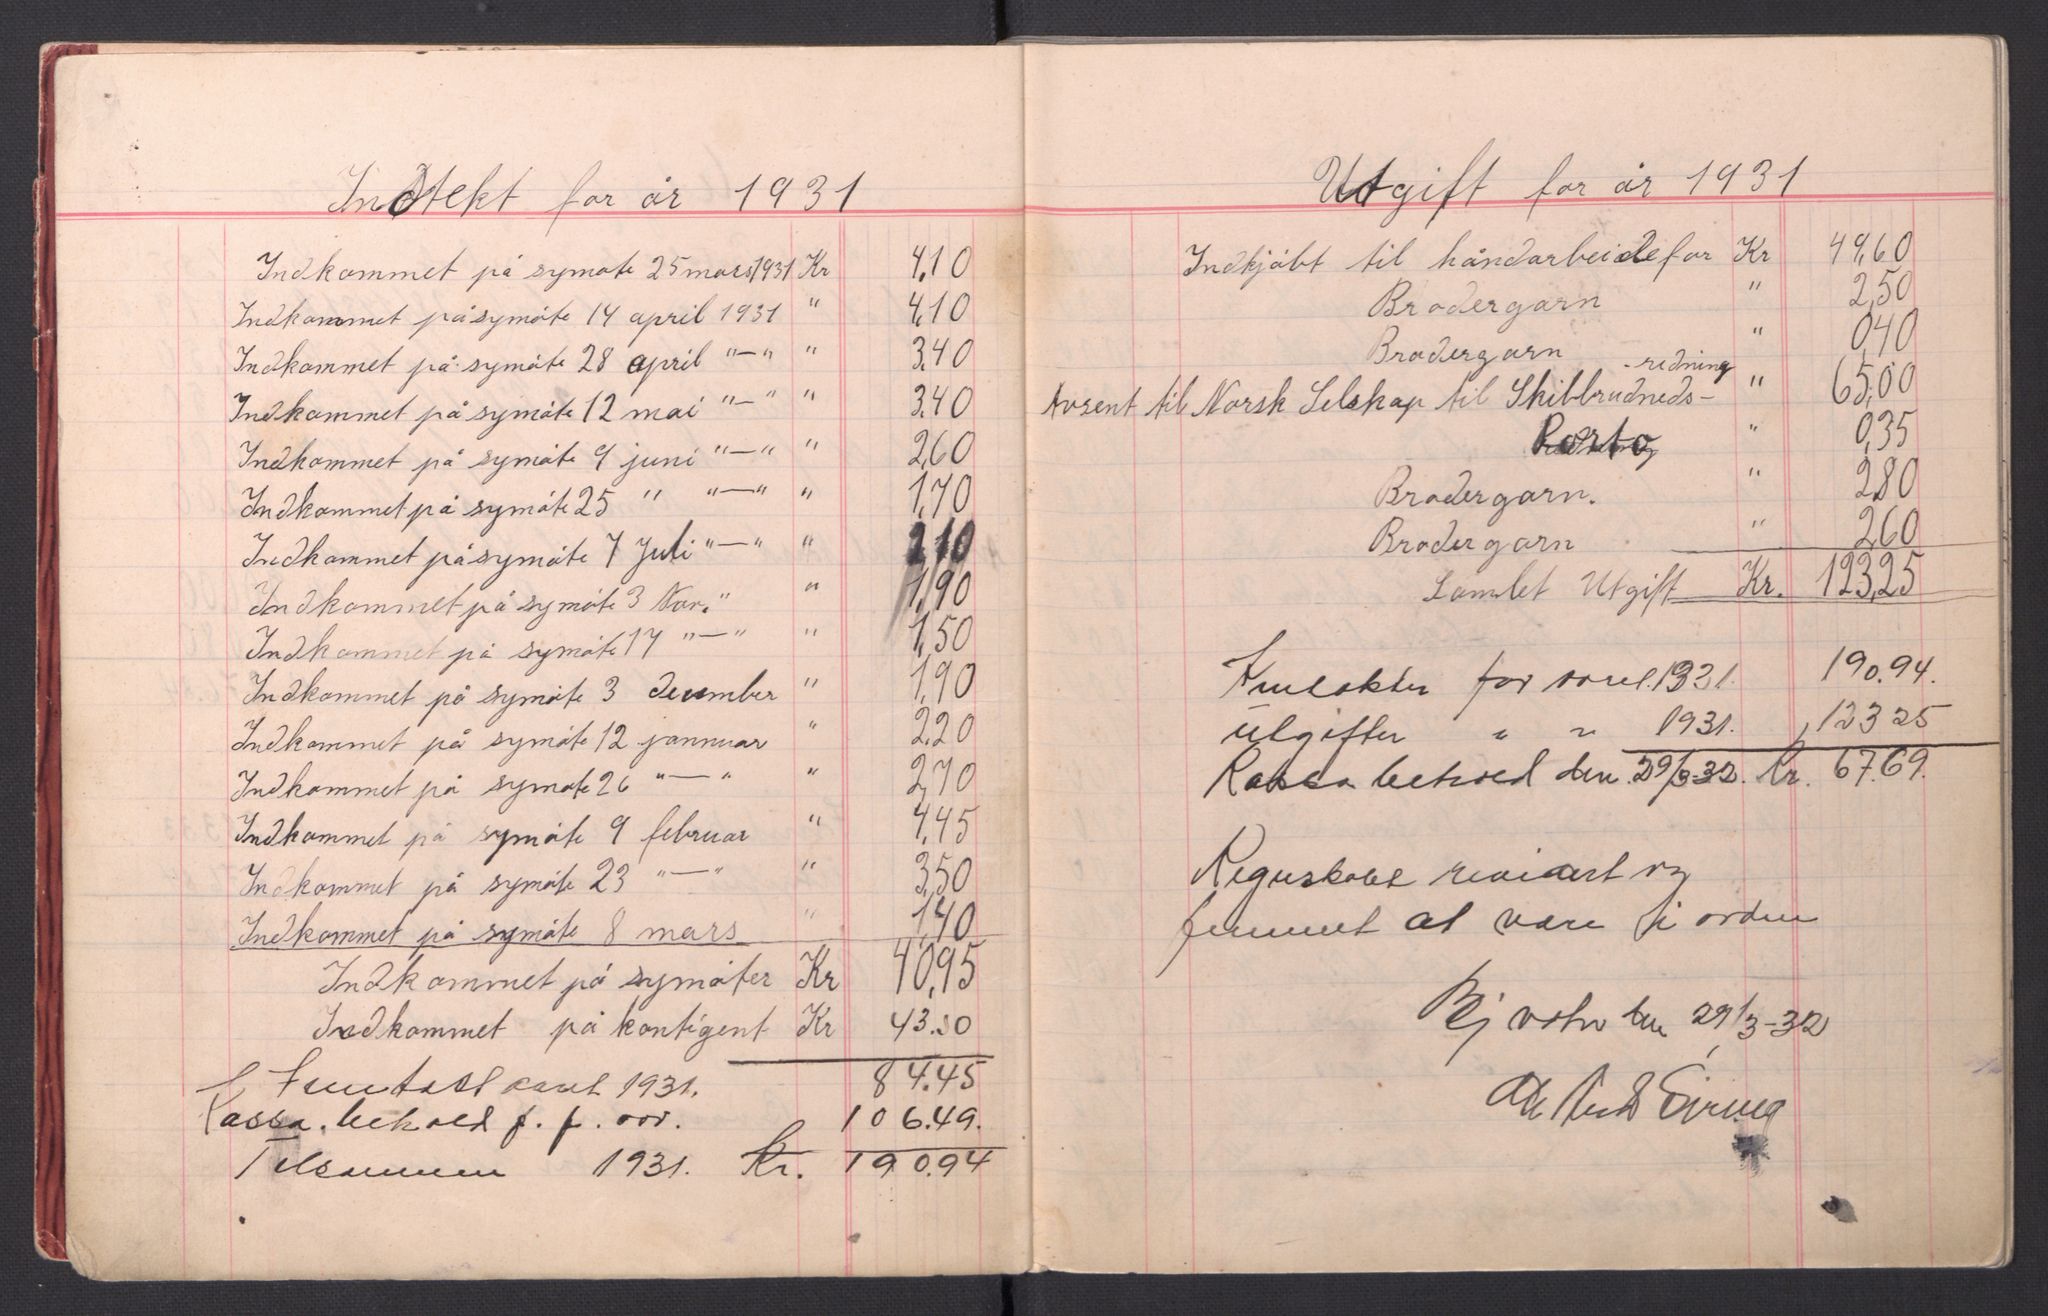 Indtekt for år 1931
Indkommet på symøte 25 mars 1931 Kr 4,10
Indkommet på symøte 14 april 1931 " 4,10
Indkommet på symøte 28 april "—" " 3,40
Indkommet på symøte 12 mai "—" " 3,40
Indkommet på symøte 9 juni "—" " 2,60
Indkommet på symøte 25 " "—" " 1,70
Indkommet på symøte 7 Juli "—" " 2,10
Indkommet på symøte 3 Nov. " " 1,90
Indkommet på symøte 17 "—" " 1,50
Indkommet på symøte 3 december " 1,90
Indkommet på symøte 12 jannuar " 2,20
Indkommet på symøte 26 "—" " 2,70
Indkommet på symøte 9 februar " 4,45
Indkommet på symøte 23 "—" " 3,50
Indkommet på symøte 8 mars " 1,40
Indkommet på symøter Kr 40,95
Indkommet på kontigent Kr 43.50
1931. 84.45
Kassa.behold f. f. 106.49.
Tilsammen 1931. Kr. 190.94
Utgift for år 1931
Indkjøbt til håndarbeide for Kr 49,60
Brodergarn " 2,50
Brodergarn " 0,40
-redning
Avsent til Norsk Selskap til Skibbrudneds- " 65,00
Porto " 0,35
Brodergarn. " 2,80
Brodergarn " 2,60
Samlet Utgift Kr. 123,25
for 1931. 190.94.
Utgifter " " 1931. 123 25
Kassa behold den 29/3-32. Kr. 67.69.
Regnskabet revidert og
funnet at være i orden
den 29/3-32